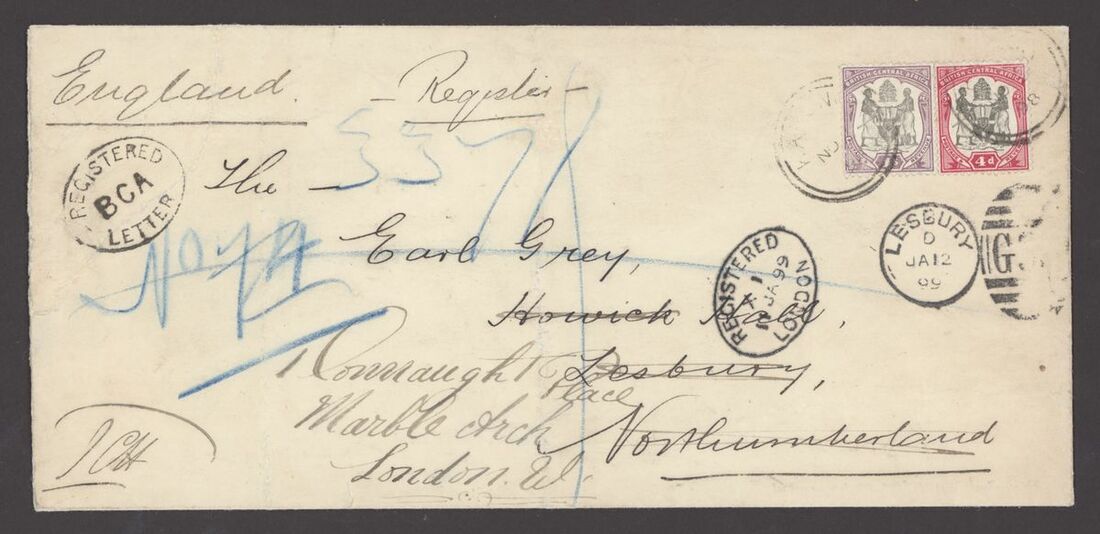 England. - Register -
BRITISH CENTRAL AFRICA BRITISH CENTRAL AFRICA
4d
REGISTERED
BCA
LETTER
337
The
No 74
Earl Grey,
Howick Hall,
Lesbury,
Northumberland
REGISTERED
JA 99
LONDON
LESBURY
D
JA 12
99
G
1 Connaught
Place
Marble Arch
London. W.